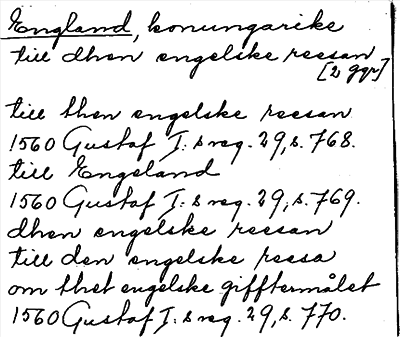 England, konungarike
till dhen engelske reesan
[2 ggr]
till then engelske reesan
1560 Gustaf I:s reg. 29, s. 768.
till Engeland
1560 Gustaf I:s reg. 29, s. 769.
dhen engelske reesan
till den engelske reesa
om thet engelske gifftermålet
1560 Gustaf I:s reg. 29, s. 770.